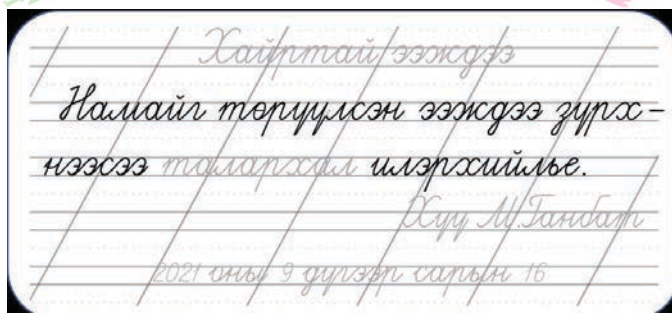 Хайртай ээждээ
Намайг төрүүлсэн ээждээ зүрх-
нээсээ талархал илэрхийлье.
Хүү М.Ганбат
2021 оны 9 дүгээр сарын 16